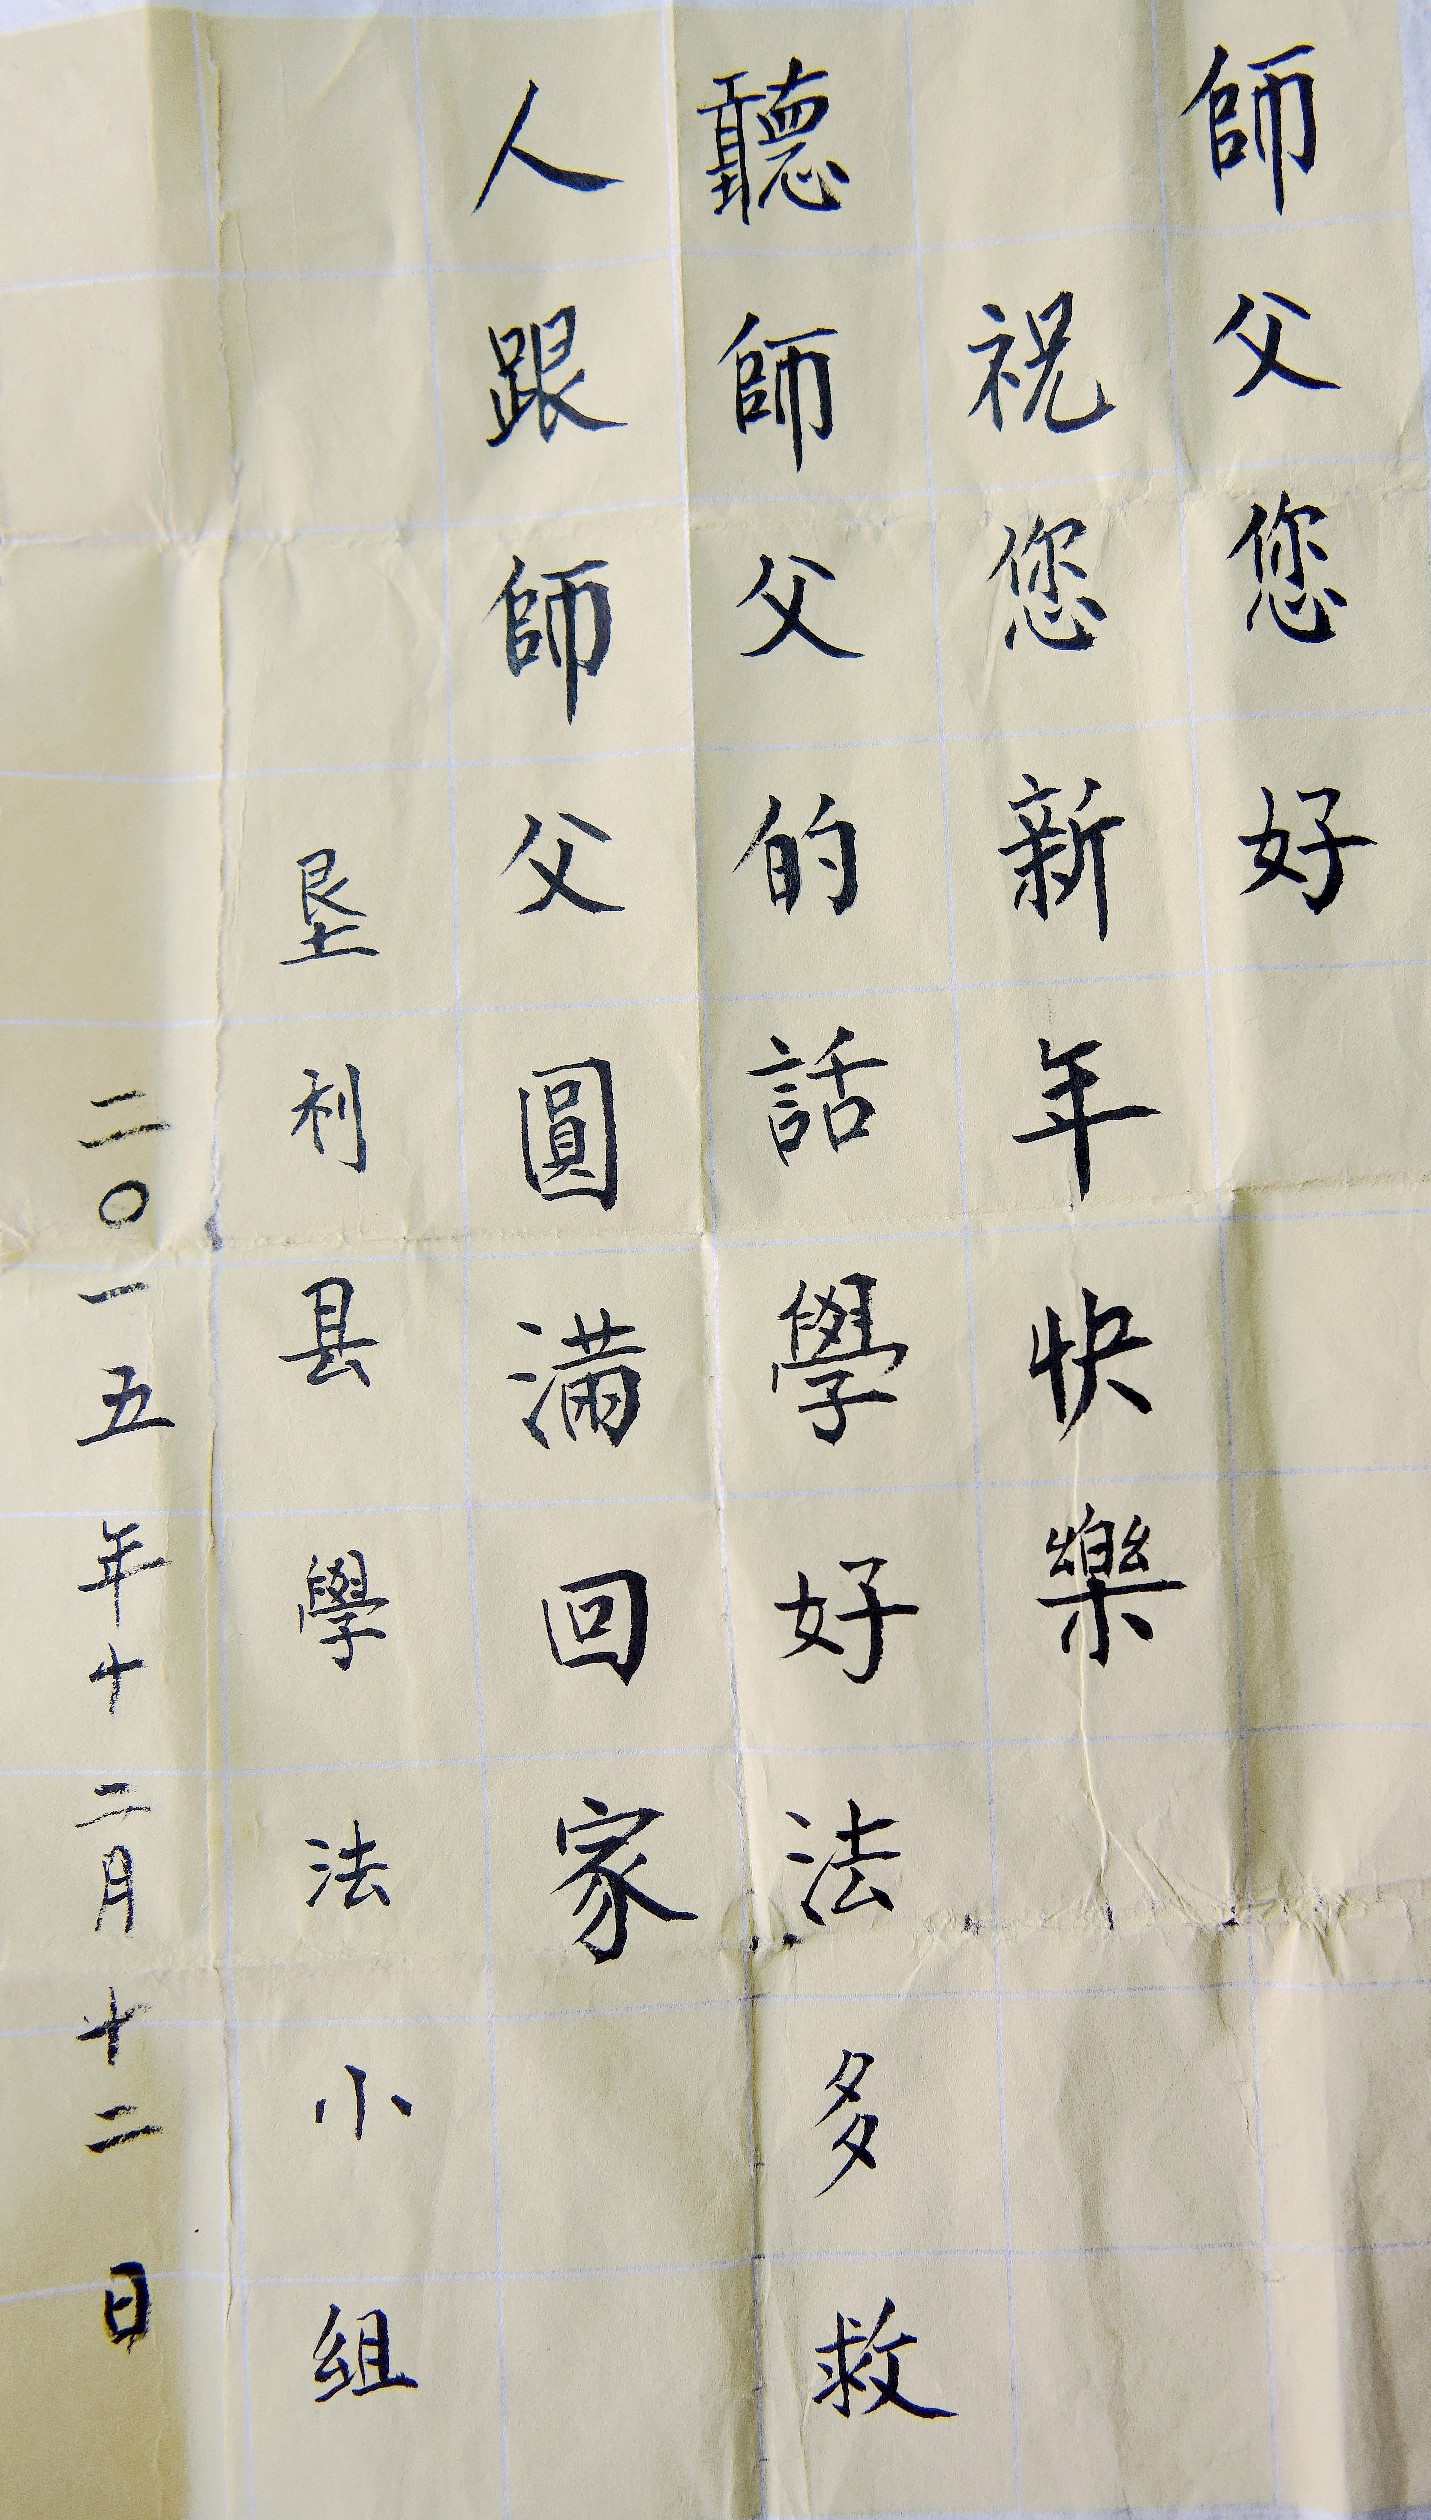 師父您好
祝您新年快樂
聽師父的話學好法多救
人跟師父圓满回家
垦利县學法小组
二〇一五年十二月十二日